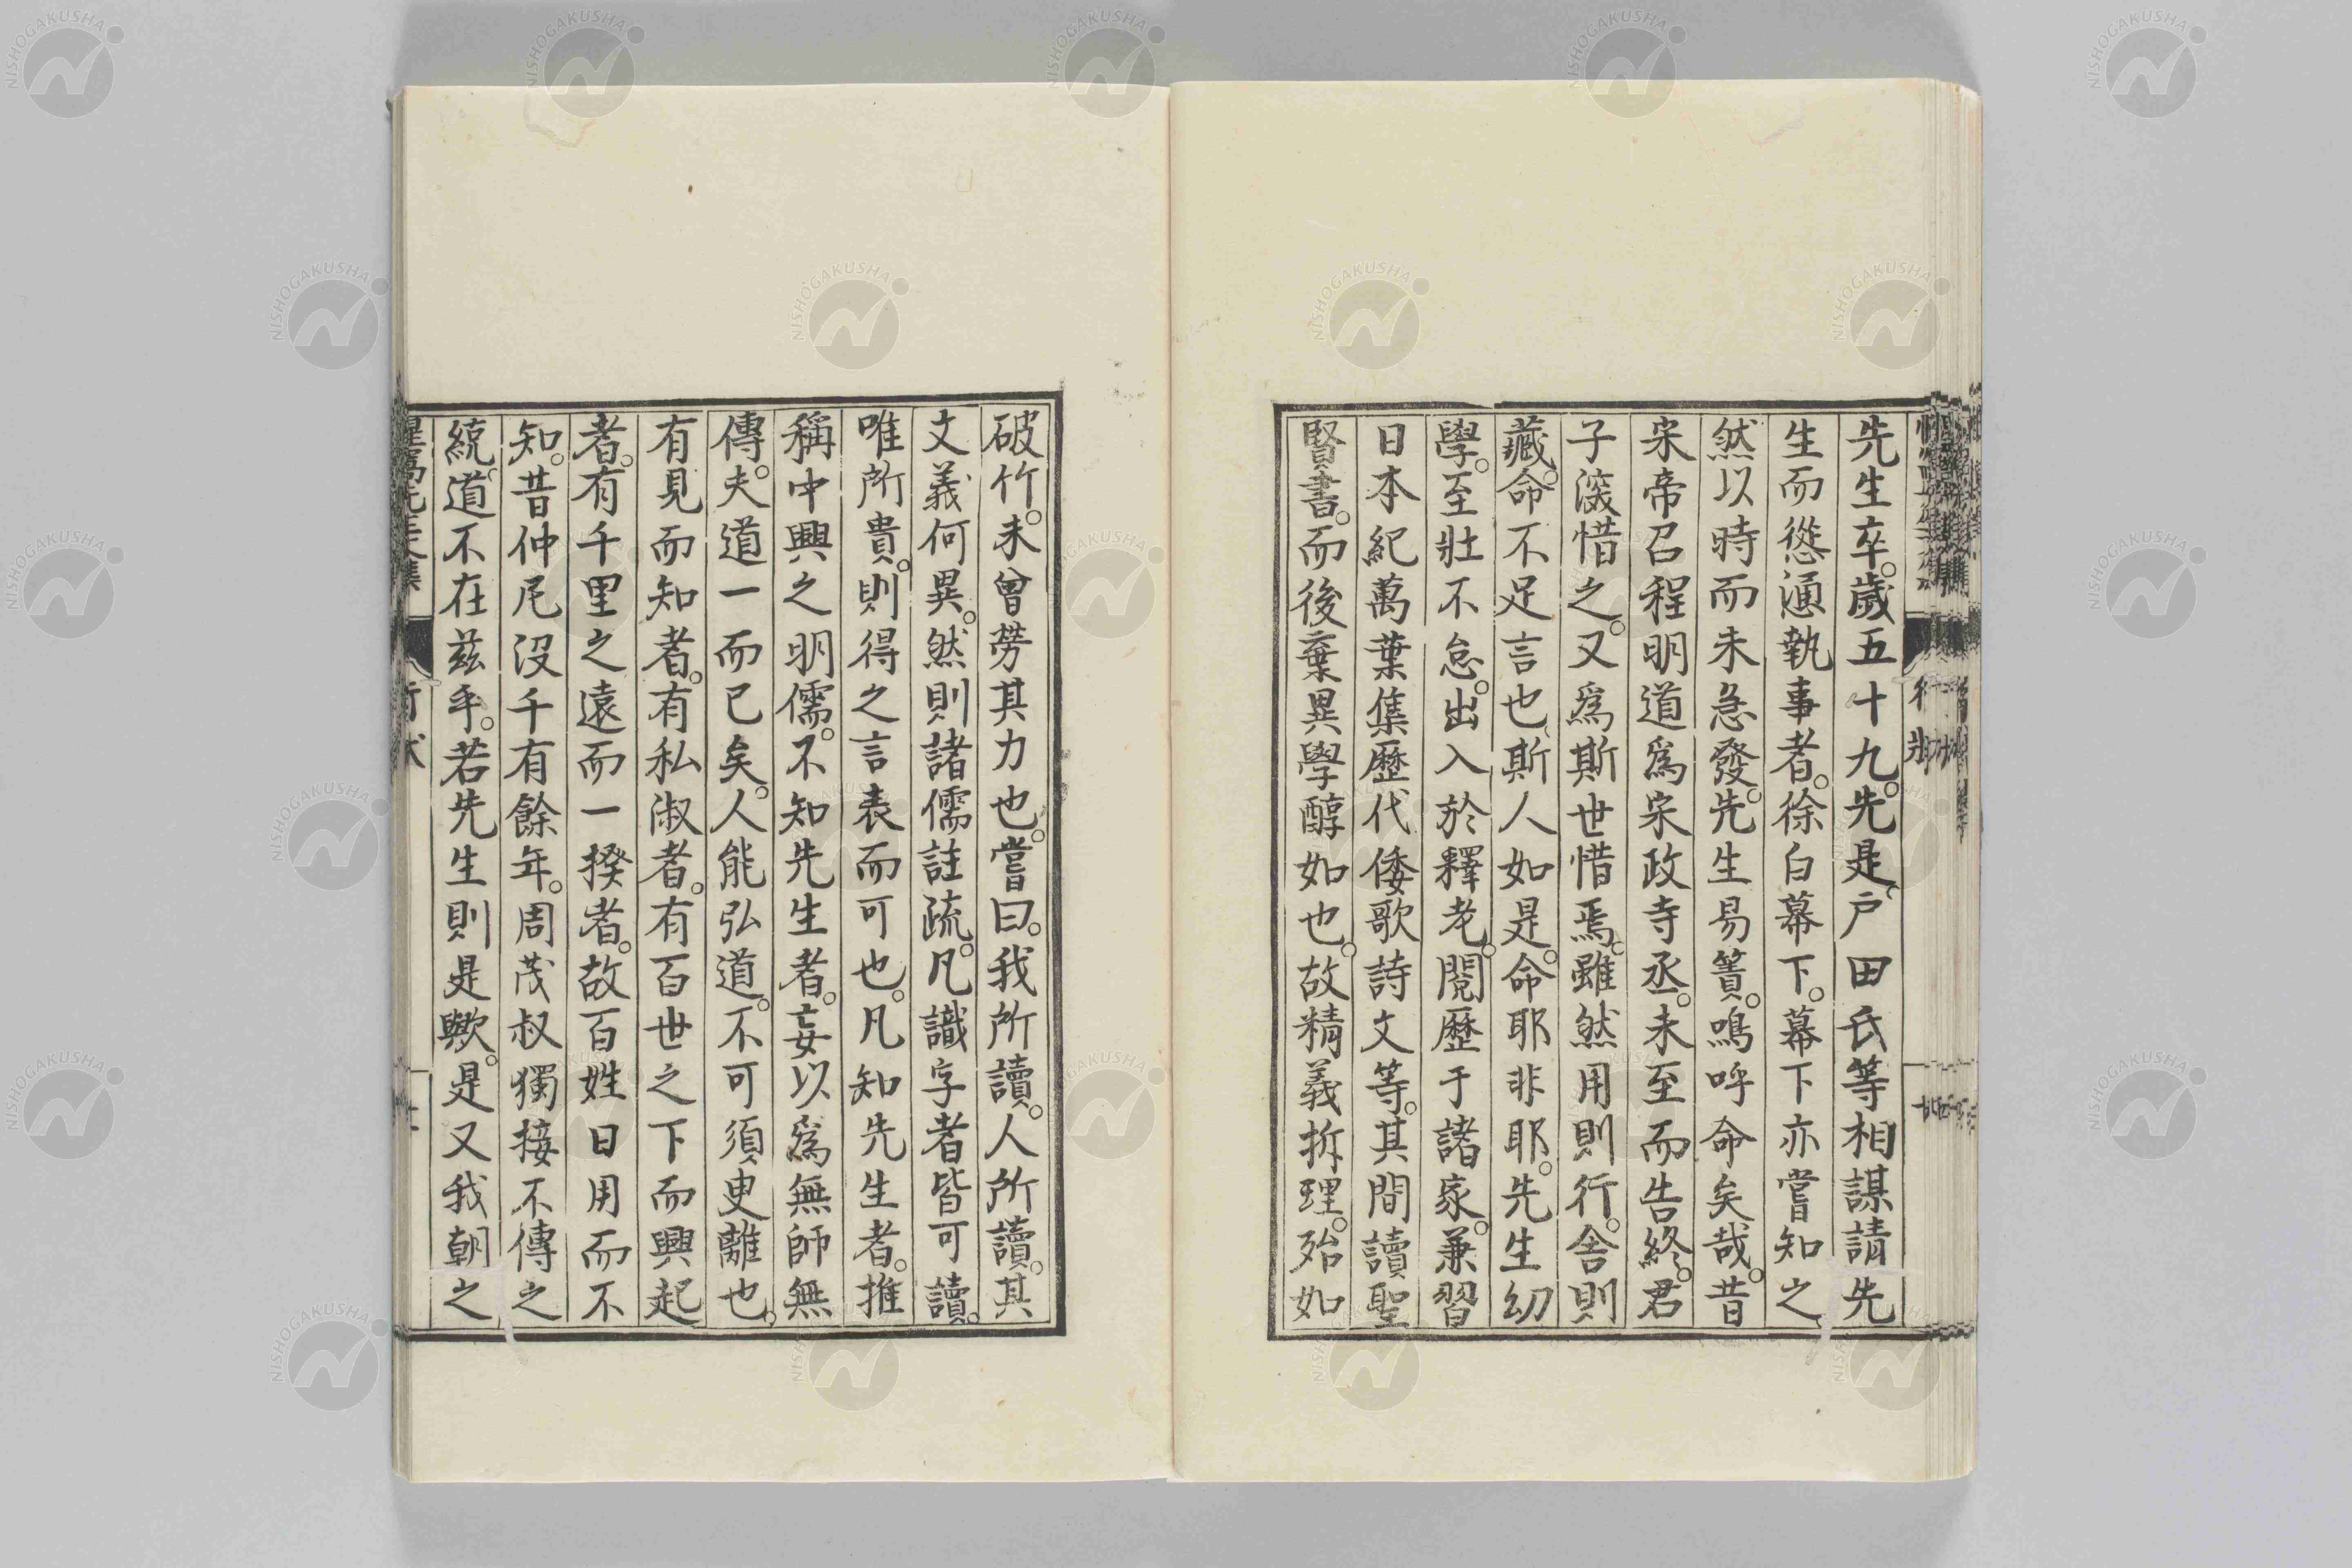 先生卒。歲五十九。先是戶田氏等相謀請先
生而慫慂執事者。徐白幕下。幕下亦嘗知之、
然以時而未急發。先生易簀。嗚呼命矣哉。昔
宋帝召程明道爲宋政寺丞。未至而告終。君
子深惜之。又爲斯世惜焉。雖然用則行。舍則
藏。命不足言也、斯人如是。命耶非耶。先生幼
學。至壯不怠。出入於釋老。閱歷于諸家。兼習
日本紀萬葉集歷代倭歌詩文等。其間讀聖
賢書。而後棄異學醇如也。故精義拆理。殆如
行狀
破竹。未曾勞其力也。嘗曰。我所讀。人所讀。其
文義何異。然則諸儒註疏。凡識字者皆可讀。
唯所貴。則得之言表而可也。凡知先生者。推
稱中興之明儒。不知先生者。妄以爲無師無
傳。夫道一而已矣。人能弘道。不可須臾離也。
有見而知者。有私淑者。有百世之下而興起
者。有千里之遠而一揆者。故百姓日用而不
知。昔仲尼沒千有餘年。周茂叔獨接不傳之
統。道不在茲乎。若先生則是歟。是又我朝之
NISHOGAKUSHA